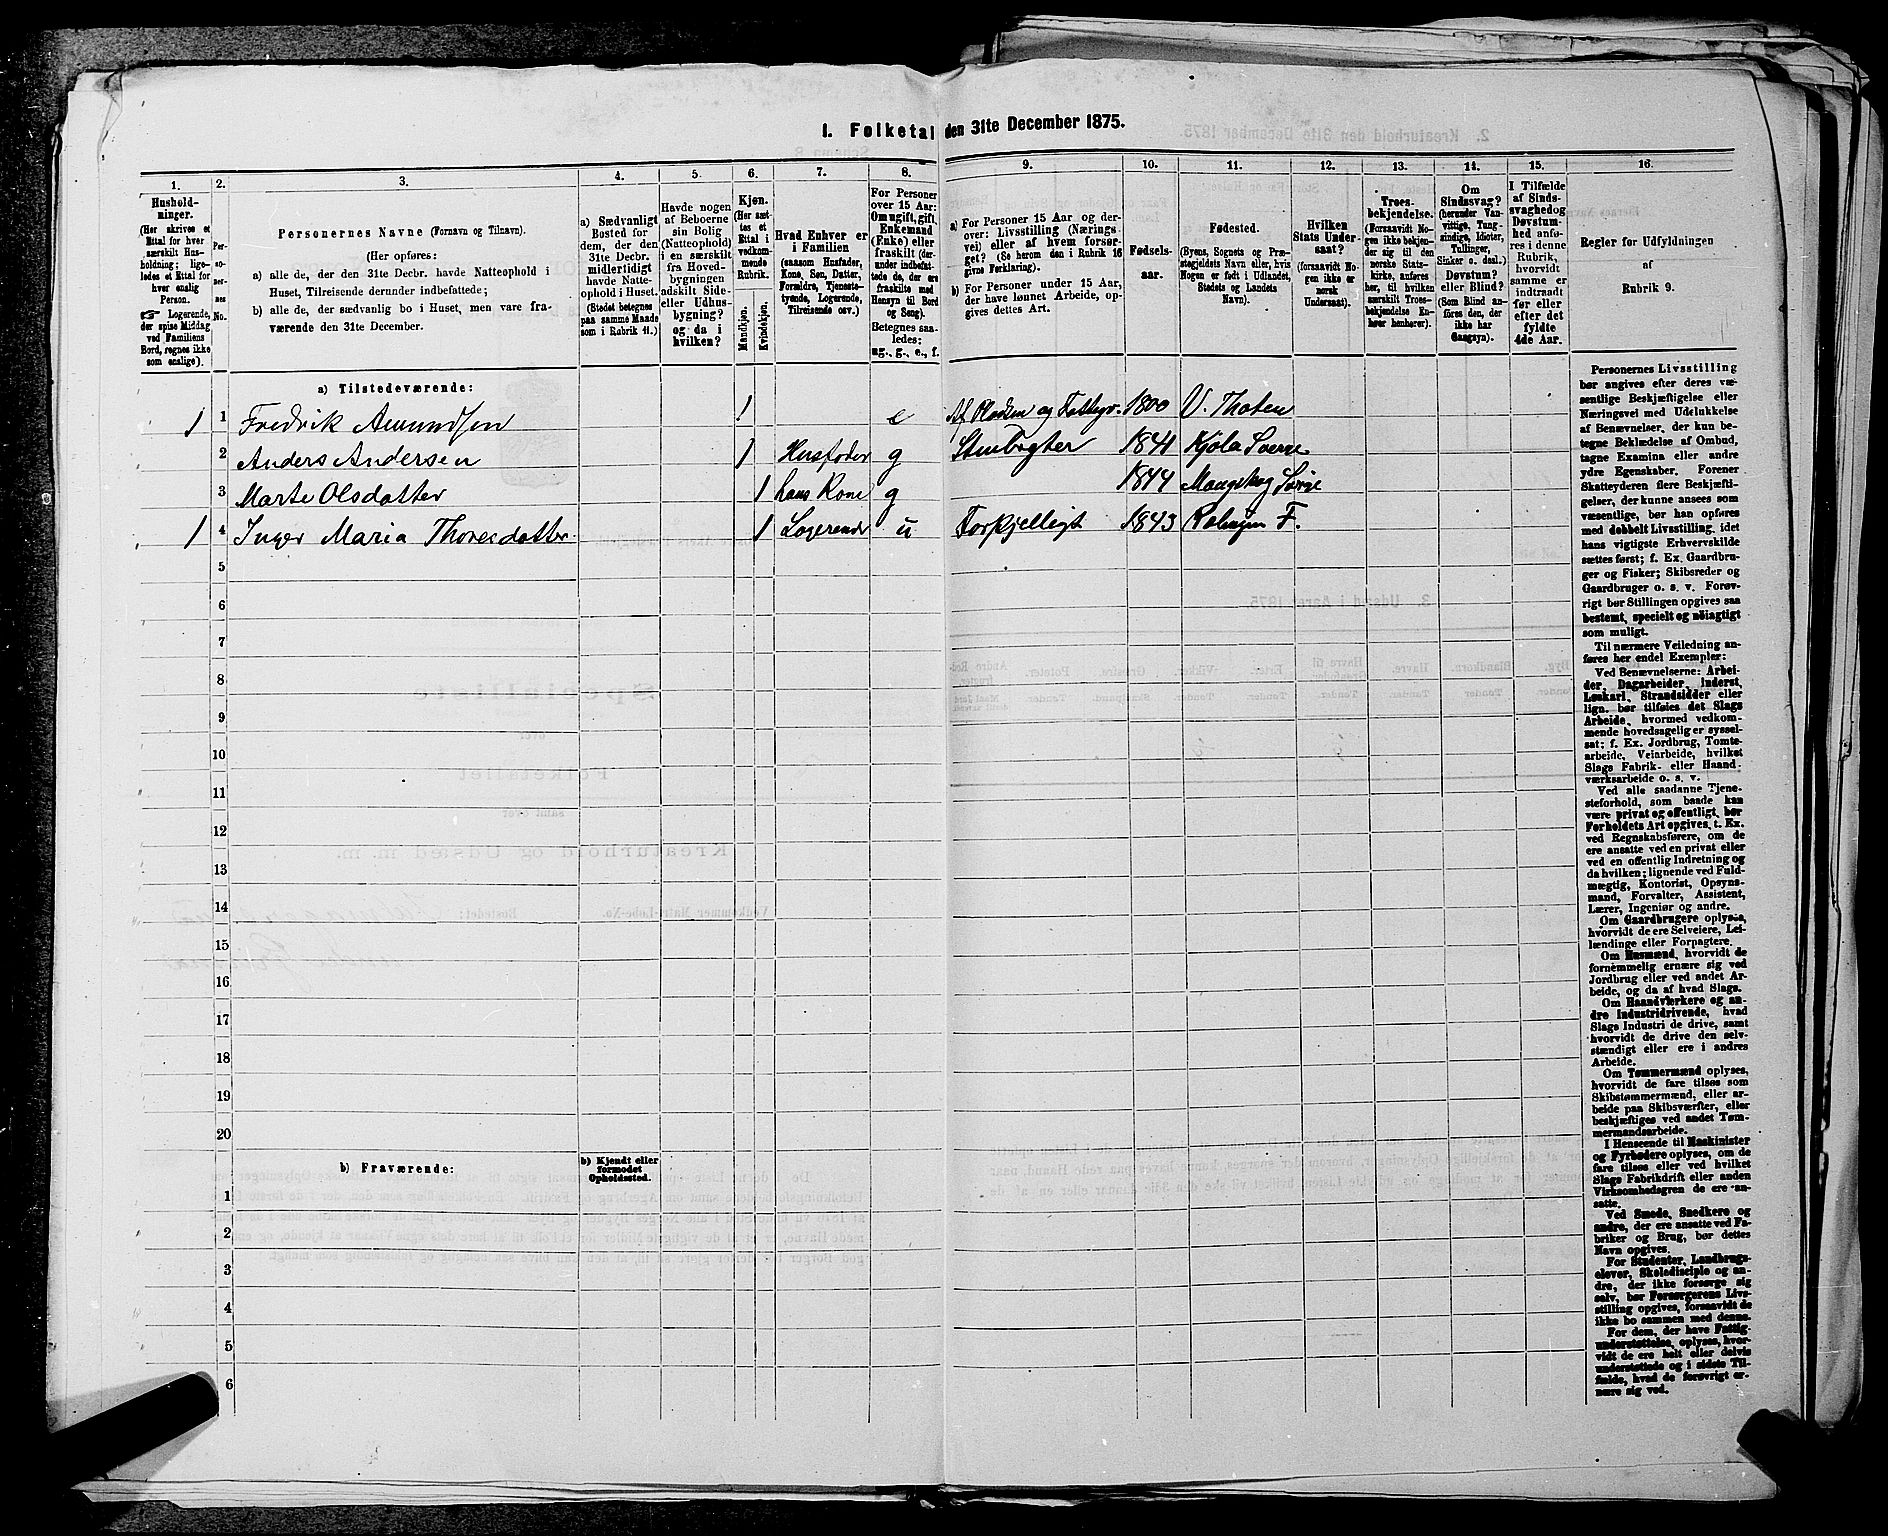 I. Folketal den 31te December 1875.
1. 2. 3. 4. 5. 6. 7. 8. 9. 10. 11. 12. 13. 14. 15. 16.
Hushold-
ninger.
(Her skrives et
Ettal for hver
særskilt Hus-
holdning; lige-
ledes et Ettal for
hver enslig
Person.
☞ Logerende,
der spise Middag
ved Familiens
Bord, regnes ikke
som enslige).
Per-
so-
ner-
nes
No.
Personernes Navne (Fornavn og Tilnavn).
(Her opføres:
a) alle de, der den 31te Decbr. havde Natteophold i
Huset, Tilreisende derunder indbefattede;
b) alle de, der sædvanlig bo i Huset, men vare fra-
værende den 31te December.
a) Sædvanligt
Bosted for
dem, der den
31te Decbr.
midlertidigt
havde Natte-
ophold i Huset.
(Stedet betegnes
paa samme Maade
som i Rubrik 11.)
Havde nogen
af Beboerne
sin Bolig
(Natteophold)
i en særskilt
fra Hoved-
bygningen
adskilt Side-
eller Udhus-
bygning?
og da i
hvilken?
Kjøn.
(Her sæt-
tes et
Ettal i
vedkom-
mende
Rubrik.
Mandkjøn.
Kvindekjøn.
Hvad Enhver er
i Familien
(saasom Husfader,
Kone, Søn, Datter,
Forældre, Tjeneste-
tyende, Logerende,
Tilreisende osv.)
For Personer
over 15 Aar:
Om ugift, gift,
Enkemand
(Enke) eller
fraskilt (der-
under indbefat-
tede de, der ere
fraskilte med
Hensyn til Bord
og Seng).
Betegnes saa-
ledes:
ug., g., e., f.
a) For Personer 15 Aar og der-
over: Livsstilling (Nærings-
vei) eller af hvem forsør-
get? (Se herom den i Rubrik 16
givne Forklaring).
b) For Personer under 15 Aar,
der have lønnet Arbeide, op-
gives dettes Art.
Fødsels-
aar.
Fødested.
(Byens, Sognets og Præ-
stegjeldets Navn eller, hvis
Nogen er født i Udlandet,
Stedets og Landets
Navn).
Hvilken
Stats Under-
saat?
(forsaavidt No-
gen ikke er
norsk
Undersaat).
Troes-
bekjendelse.
(Forsaavidt No-
gen ikke bekjen-
der sig til den
norske Stats-
kirke, anføres
her, til hvilken
særskilt Troes-
bekjendelse En-
hver henhører).
Om
Sindssvag?
(herunder Van-
vittige, Tung-
sindige, Idioter,
Tullinger,
Sinker o. desl.)
Døvstum?
eller Blind?
(Som Blind an-
føres den, der
ikke har
Gangsyn).
I Tilfælde
af Sinds-
svaghed og
Døvstum-
hed anfø-
res i denne
Rubrik,
hvorvidt
samme er
indtraadt
før eller
efter det
fyldte
4de Aar.
Regler for Udfyldningen
af
Rubrik 9.
a) Tilstedeværende:
1 1 Fredrik Amundsen 1 e 1800 V. Thoten
2 Anders Andersen 1 Husfader g 1841
3 Marte Olsdatter 1 hans Kone g 1844
1 4 Inger Maria Thoresdatter 1 Logerende u Forskjelligt 1843
5
6
7
8
9
10
11
12
13
14
15
16
17
18
19
20
b) Fraværende:
b) Kjendt eller
formodet
Opholdssted.
1
2
3
4
5
6
Personernes Livsstilling
bør angives efter deres væ-
sentlige Beskjæftigelse eller
Næringsvei med Udelukkelse
af Benævnelser, der kun be-
tegne Beklædelse af Ombud,
tagne Examina eller andre
ydre Egenskaber. Forener
Skatteyderen flere Beskjæfti-
gelser, der kunne ansees som
væsentlige, bør han opføres
med dobbelt Livsstilling, idet
hans vigtigste Erhvervskilde
sættes først; f. Ex. Gaardbru-
ger og Fisker; Skibsreder og
Gaardbruger o. s. v. Forøv-
rigt bør Stillingen opgives saa
bestemt, specielt og nøiagtigt
som muligt.
Til nærmere Veiledning an-
føres her endel Exempler:
Ved Benævnelserne: Arbei-
der, Dagarbeider, Inderst,
Løskarl, Strandsidder eller
lign. bør tilføies det Slags
Arbeide, hvormed vedkom-
mende hovedsagelig er syssel-
sat; f. Ex. Jordbrug, Tomte-
arbeide, Veiarbeide, hvilket
Slags Fabrik- eller Haand-
værksarbeide o. s. v.
Ved alle saadanne Tjene-
steforhold, som baade kan
være privat og offentligt, bør
Forholdets Art opgives, t. Ex.
ved Regnskabsførere, om de
ere ansatte ved en privat eller
ved en offentlig Indretning og
da hvilken; lignende ved Fuld-
mægtig, Kontorist, Opsyns-
mand, Forvalter, Assistent,
Lærer, Ingeniør og andre.
Om Gaardbrugere oplyses,
hvorvidt de ere Selveiere, Lei-
lændinge eller Forpagtere.
Om Husmænd, hvorvidt de
fornemmelig ernære sig ved
Jordbrug eller ved andet Ar-
beide, og da af hvad Slags.
Om Haandværkere og an-
dre Industridrivende, hvad
Slags Industri de drive, samt
hvorvidt de drive den selv-
stændigt eller ere i andres
Arbeide.
Om Tømmermænd oplyses,
hvorvidt de fare tilsøs som
Skibstømmermænd, eller ar-
beide paa Skibsværfter, eller
beskjæftiges ved andet Tøm-
mermandsarbeide.
I Henseende til Maskinister
og Fyrbødere oplyses, om de
fare tilsøs eller ved hvilket
Slags Fabrikdrift eller anden
Virksomhedsgren de ere an-
satte.
Ved Smede, Snedkere og
andre, der ere ansatte ved Fa-
briker og Brug, bør dettes
Navn opgives.
For Studenter, Landbrugs-
elever, Skoledisciple og an-
dre, der ikke forsørge sig
selv, bør Forsørgerens Livs-
stilling opgives, forsaavidt de
ikke bo sammen med denne.
For dem, der have Fattig-
understøttelse, oplyses, hvor-
vidt de ere helt eller delvis
understøttede og i sidste Til-
fælde, hvad de forøvrigt er-
nære sig ved.